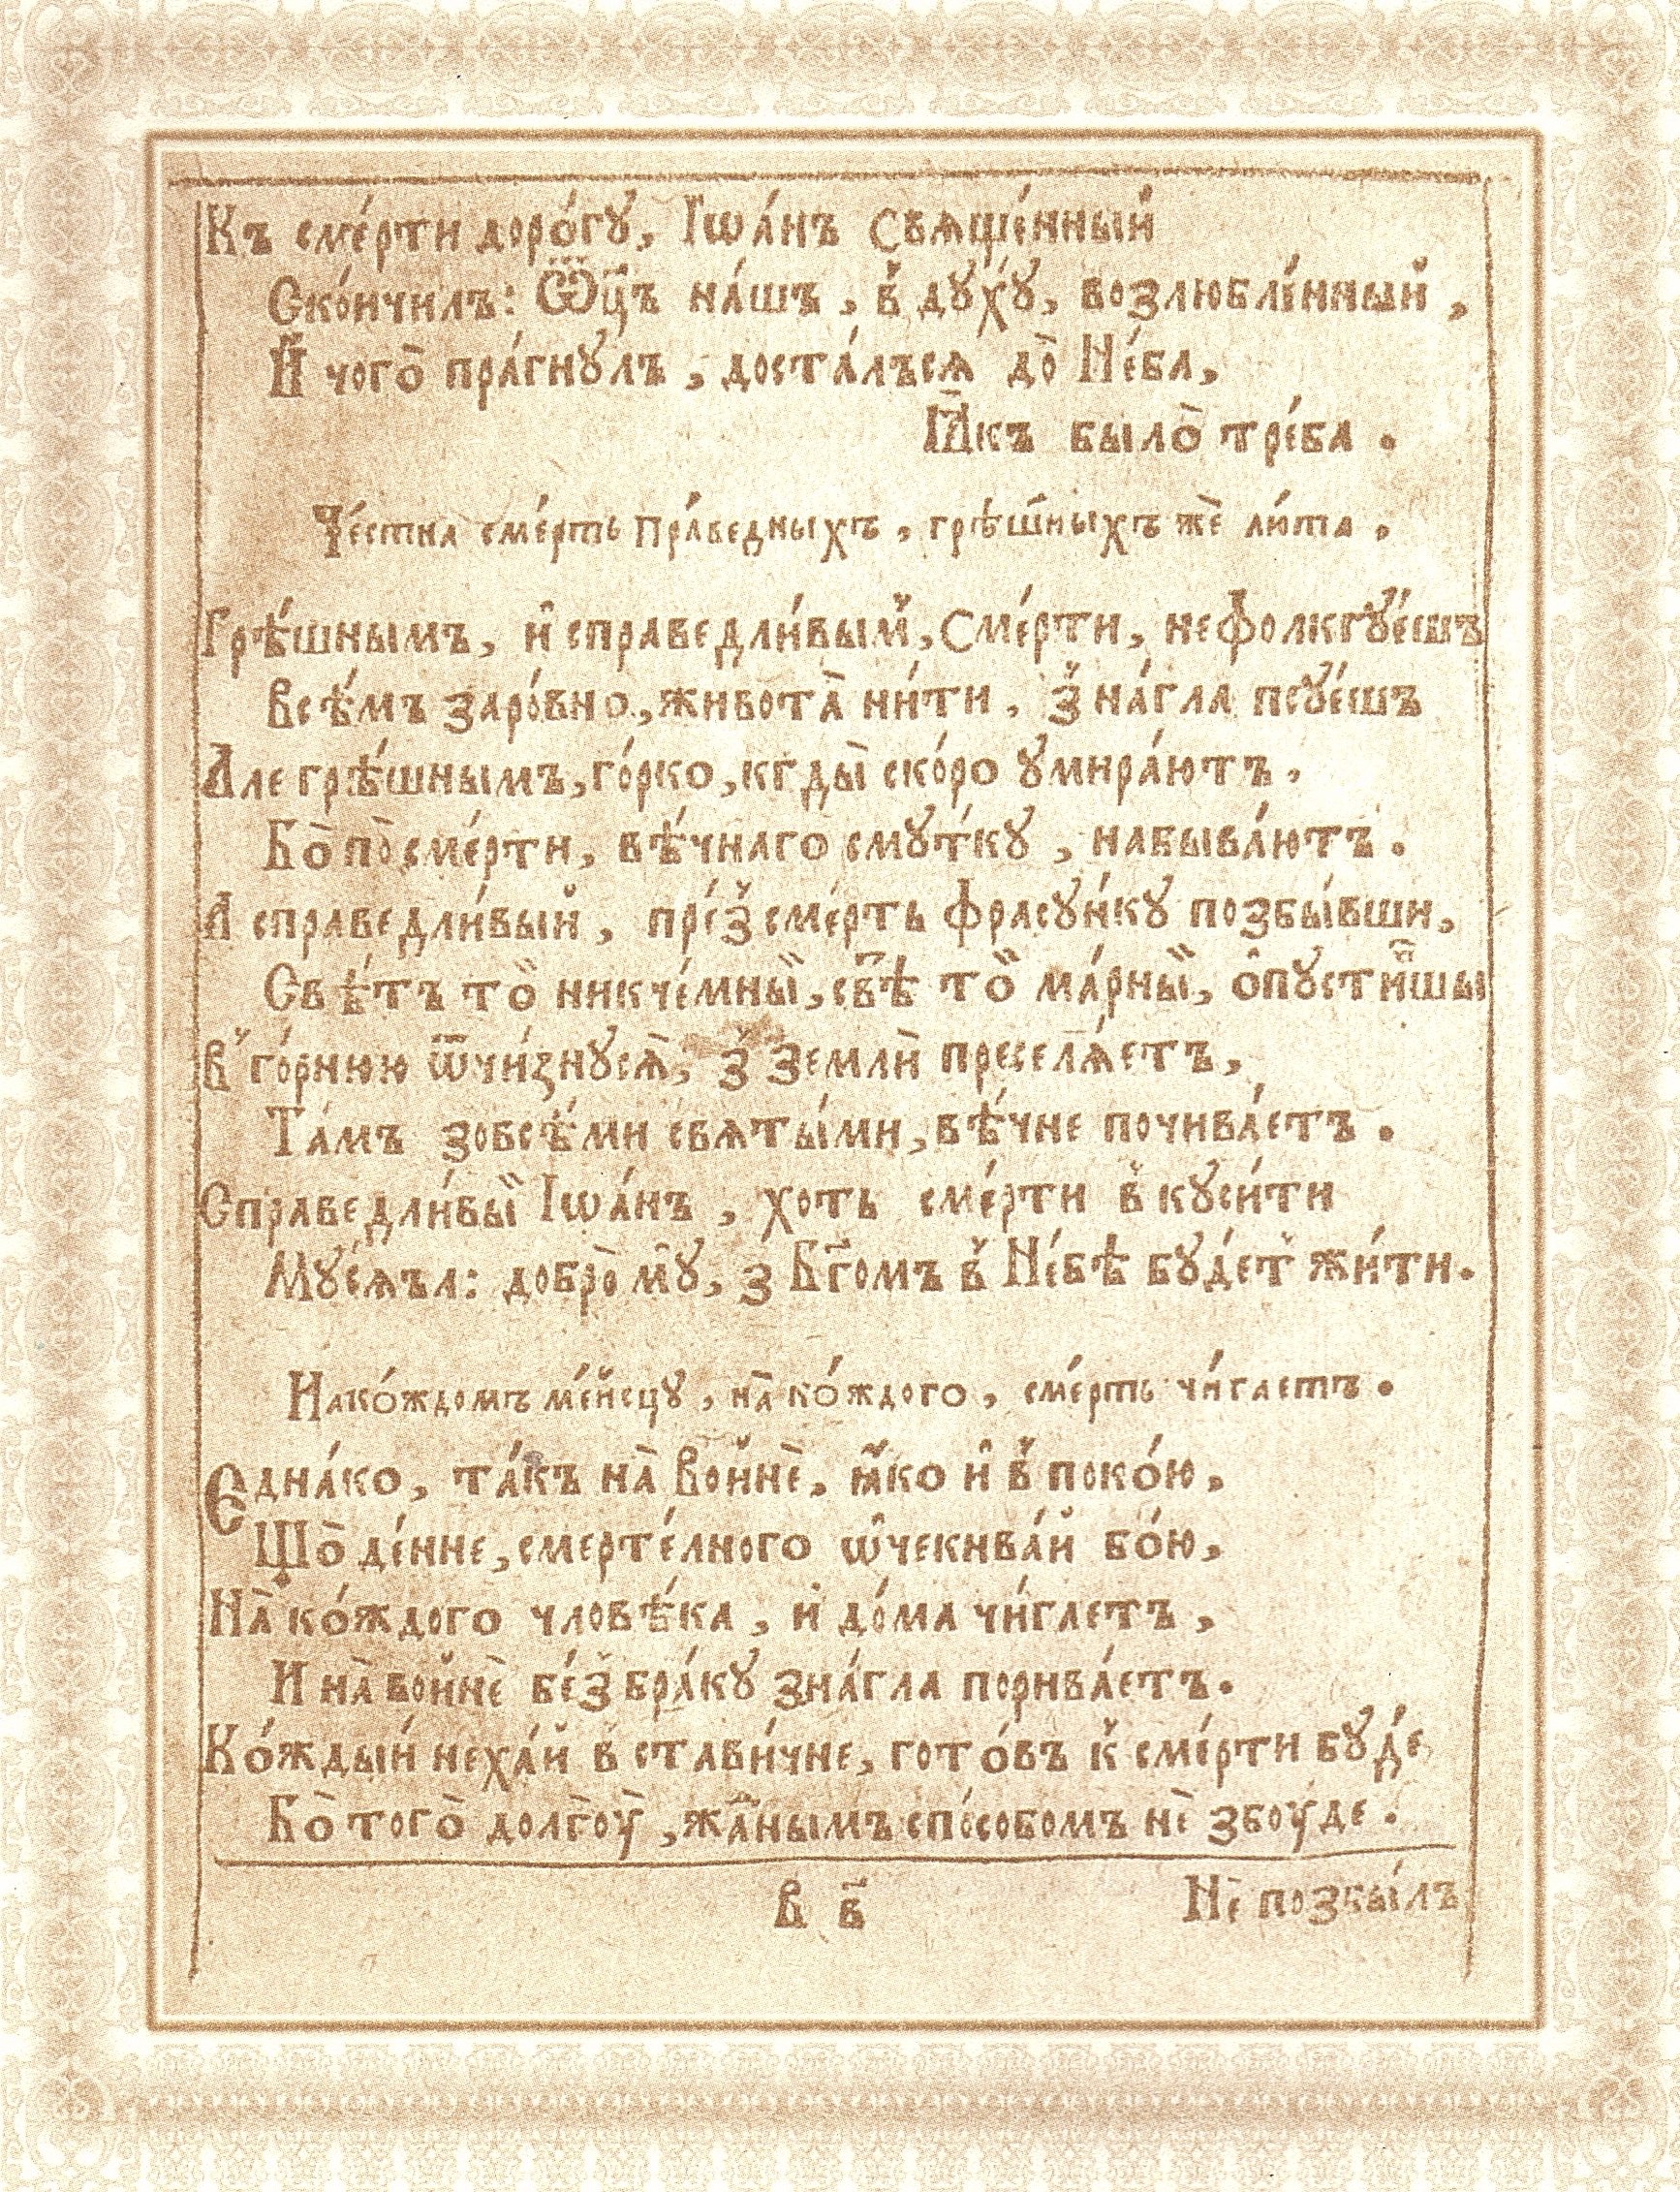 Къ сме́рти доро́гꙋ, Іѡа́нъ Свѧще́нный
Ско́нчилъ: Ѿц҃ъ на́шъ, в̾ дꙋ́хꙋ, возлюбле́нный,
И҆ чого̀ пра́гнꙋлъ, доста́лъсѧ до̀ Не́ба,
Ꙗ҆́къ было̀ тре́ба.
Че́стна сме́рть пра́ведныхъ, грѣ́шныхъ жѐ лю́та.
Грѣ́шнымъ, и҆ справедли́вым̾, Сме́рти, нефолкгꙋ́ешъ
Всѣ́мъ заро́вно, живота̀ ни́ти, з̾ на́гла псꙋ́ешъ
Але грѣ́шнымъ, го́рко, кгды̀ ско́ро ꙋмира́ютъ.
Бо̀ по̀ сме́рти, вѣ́чнаго смꙋ́ткꙋ, набыва́ютъ.
А справедли́вый, пре́з̾ сме́рть фрасꙋ́нкꙋ позбы́вши,
Свѣ́тъ то̏ никче́мны̏, свѣ̑ то̏ ма́рны̏, о҆пꙋсти́вшы
в̾ го́рнюю ѿчи́знꙋсѧ̀, з̾ земли̏ преселѧ́етъ,
Та́мъ зовсѣ́ми свѧты́ми, вѣ́чне почива́етъ.
Справедли́вы̏ Іѡа́нъ, хоть сме́рти в̾ кꙋси́ти
Мꙋ́сѧъл: добро̀ мꙋ̑, з Бг҃омъ в̾ Не́бѣ бꙋ́дет̾ жи́ти.
Нако́ждомъ ме́йсцꙋ, на̀ ко́ждого, сме́рть чи́гаетъ.
Єдна́ко, та́къ на̀ Войнѐ, ꙗ҆́ко и҆ в̾ поко́ю,
Що̀ де́нне, смерте́лного ѡ҆чекива́й бо́ю,
На̀ ко́ждого чловѣ́ка, и до́ма чи́гаетъ,
И на̀ войнѐ бе́з̾ бра́кꙋ зна́гла порива́етъ.
Ко́ждый неха́й в̾ ставичне, гото́въ к̾ сме́рти бꙋ́де
Бо̀ того̀ долгꙋ̀, жа́нымъ способомъ нѐ збоуде.
В в҃
Нѐ позбы́лъ